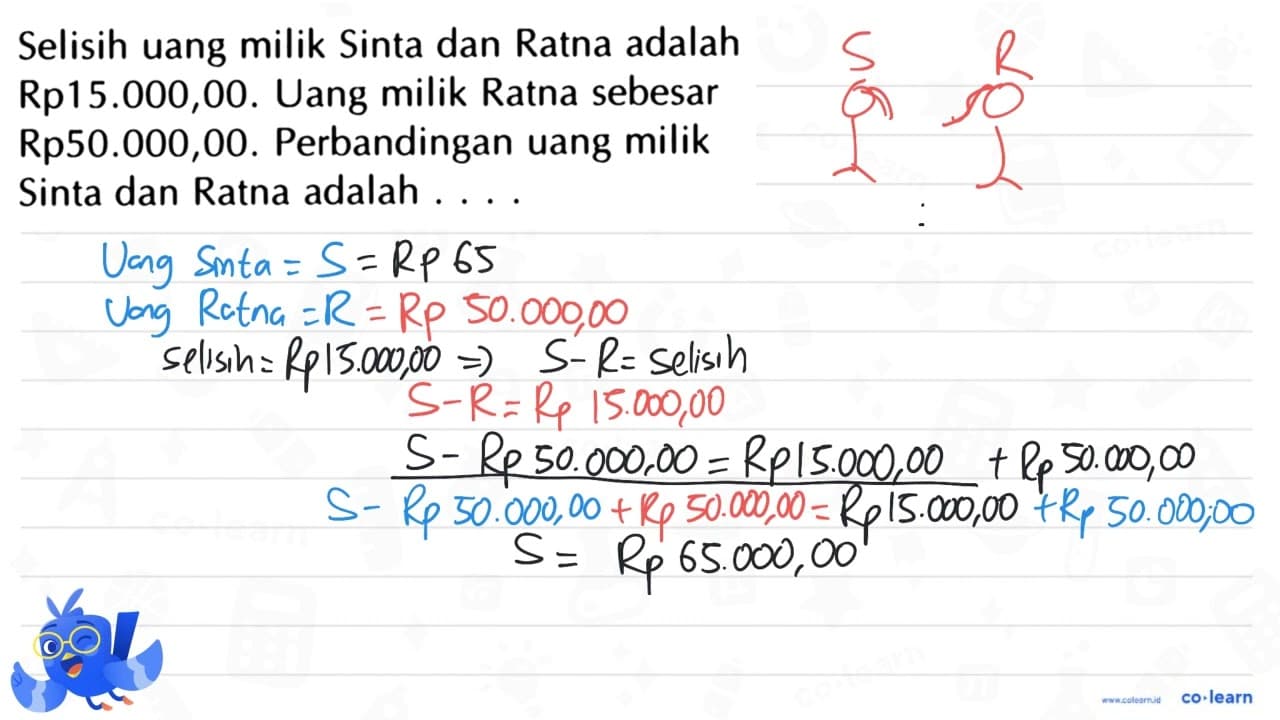 Selisih uang milik Sinta dan Ratna adalah
Rp15.000,00. Uang milik Ratna sebesar
Rp50.000,00. Perbandingan uang milik
Sinta dan Ratna adalah . . . .
S R
:
Uang Sinta = S = Rp 65
Uang Ratna = R = Rp 50.000,00
selisih = Rp15.000,00 => S - R = selisih
S - R = Rp 15.000,00
S - Rp 50.000,00 = Rp15.000,00 + Rp 50.000,00
S - Rp 50.000,00 + Rp 50.000,00 = Rp15.000,00 + Rp 50.000,00
S = Rp 65.000,00
www.colearn.id co·learn